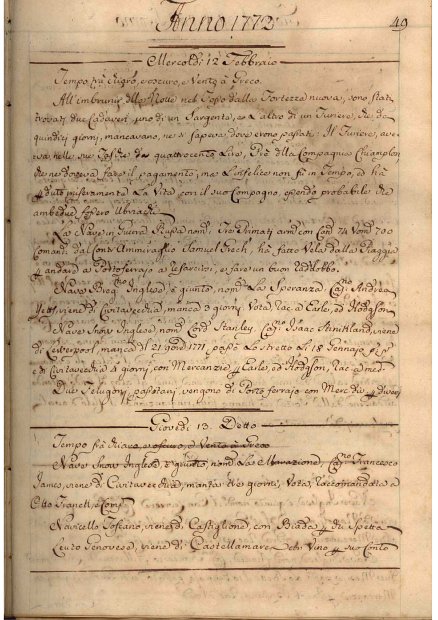 Anno 1772
49
Mercoldi 12 Febbraio
Tempo frà Nigro, e oscuro, e Vento à Greco.
All'imbrunir della Notte nel Fosso della Fortezza nuova, sono stati
trovati due Cadaveri, uno di un Sargente, e l'altro di un Furiere, che da
quindici giorni, mancavano, ne si sapeva, dove erono passati: Il Furiere, ave-
va nelle sue quattrocento Lire, della Compagnia
ne doveva fare il pagamento, ma l'infelice non fù in Tempo, ed hà
perduto miseramente la Vita con il suo Compagno, essendo probabile che
ambedue fossero Ubriachi
La Nave in Guerra Russa nom. Tre Primati arm. con Can. 74 Uom. 700
Comand. dal Contr'Ammiraglio Samuel hà fatto Vela dalla Piaggia
p andare a Portoferrajo a e fare un buon Raddobbo.
Nave Inglese, è giunta, nom. La Speranza, Cap. Andrea
viene di Civitavecchia, manca 3 giorni, Vota, Rac. a Earle, ed Hodgson
Nave Snow Inglese, nom. Stanley, Cap. Isaac viene
di Leverpool, manca dl 21 1771, passò Lo Stretto li 18 Gennajo
di Civitavecchia 4 giorni, con Mercanzie p Earle, ed Hodgson, Rac. a med.
Due vengono di Porto ferrajo con Merc. p diversi
Giovedi 13. Detto
Tempo frà e oscuro, e Vento à Greco
Nave Snow Inglese, è giunta, nom. La Cap. Francesco
James, viene di Civitavecchia, manca giorni, Vota, Raccomandata a
Otto Franck, e Comp.
Navicello Toscano, viene di Castiglione, con Biada p
Leuto Genovese, viene di Castellamare Vino p suo Conto